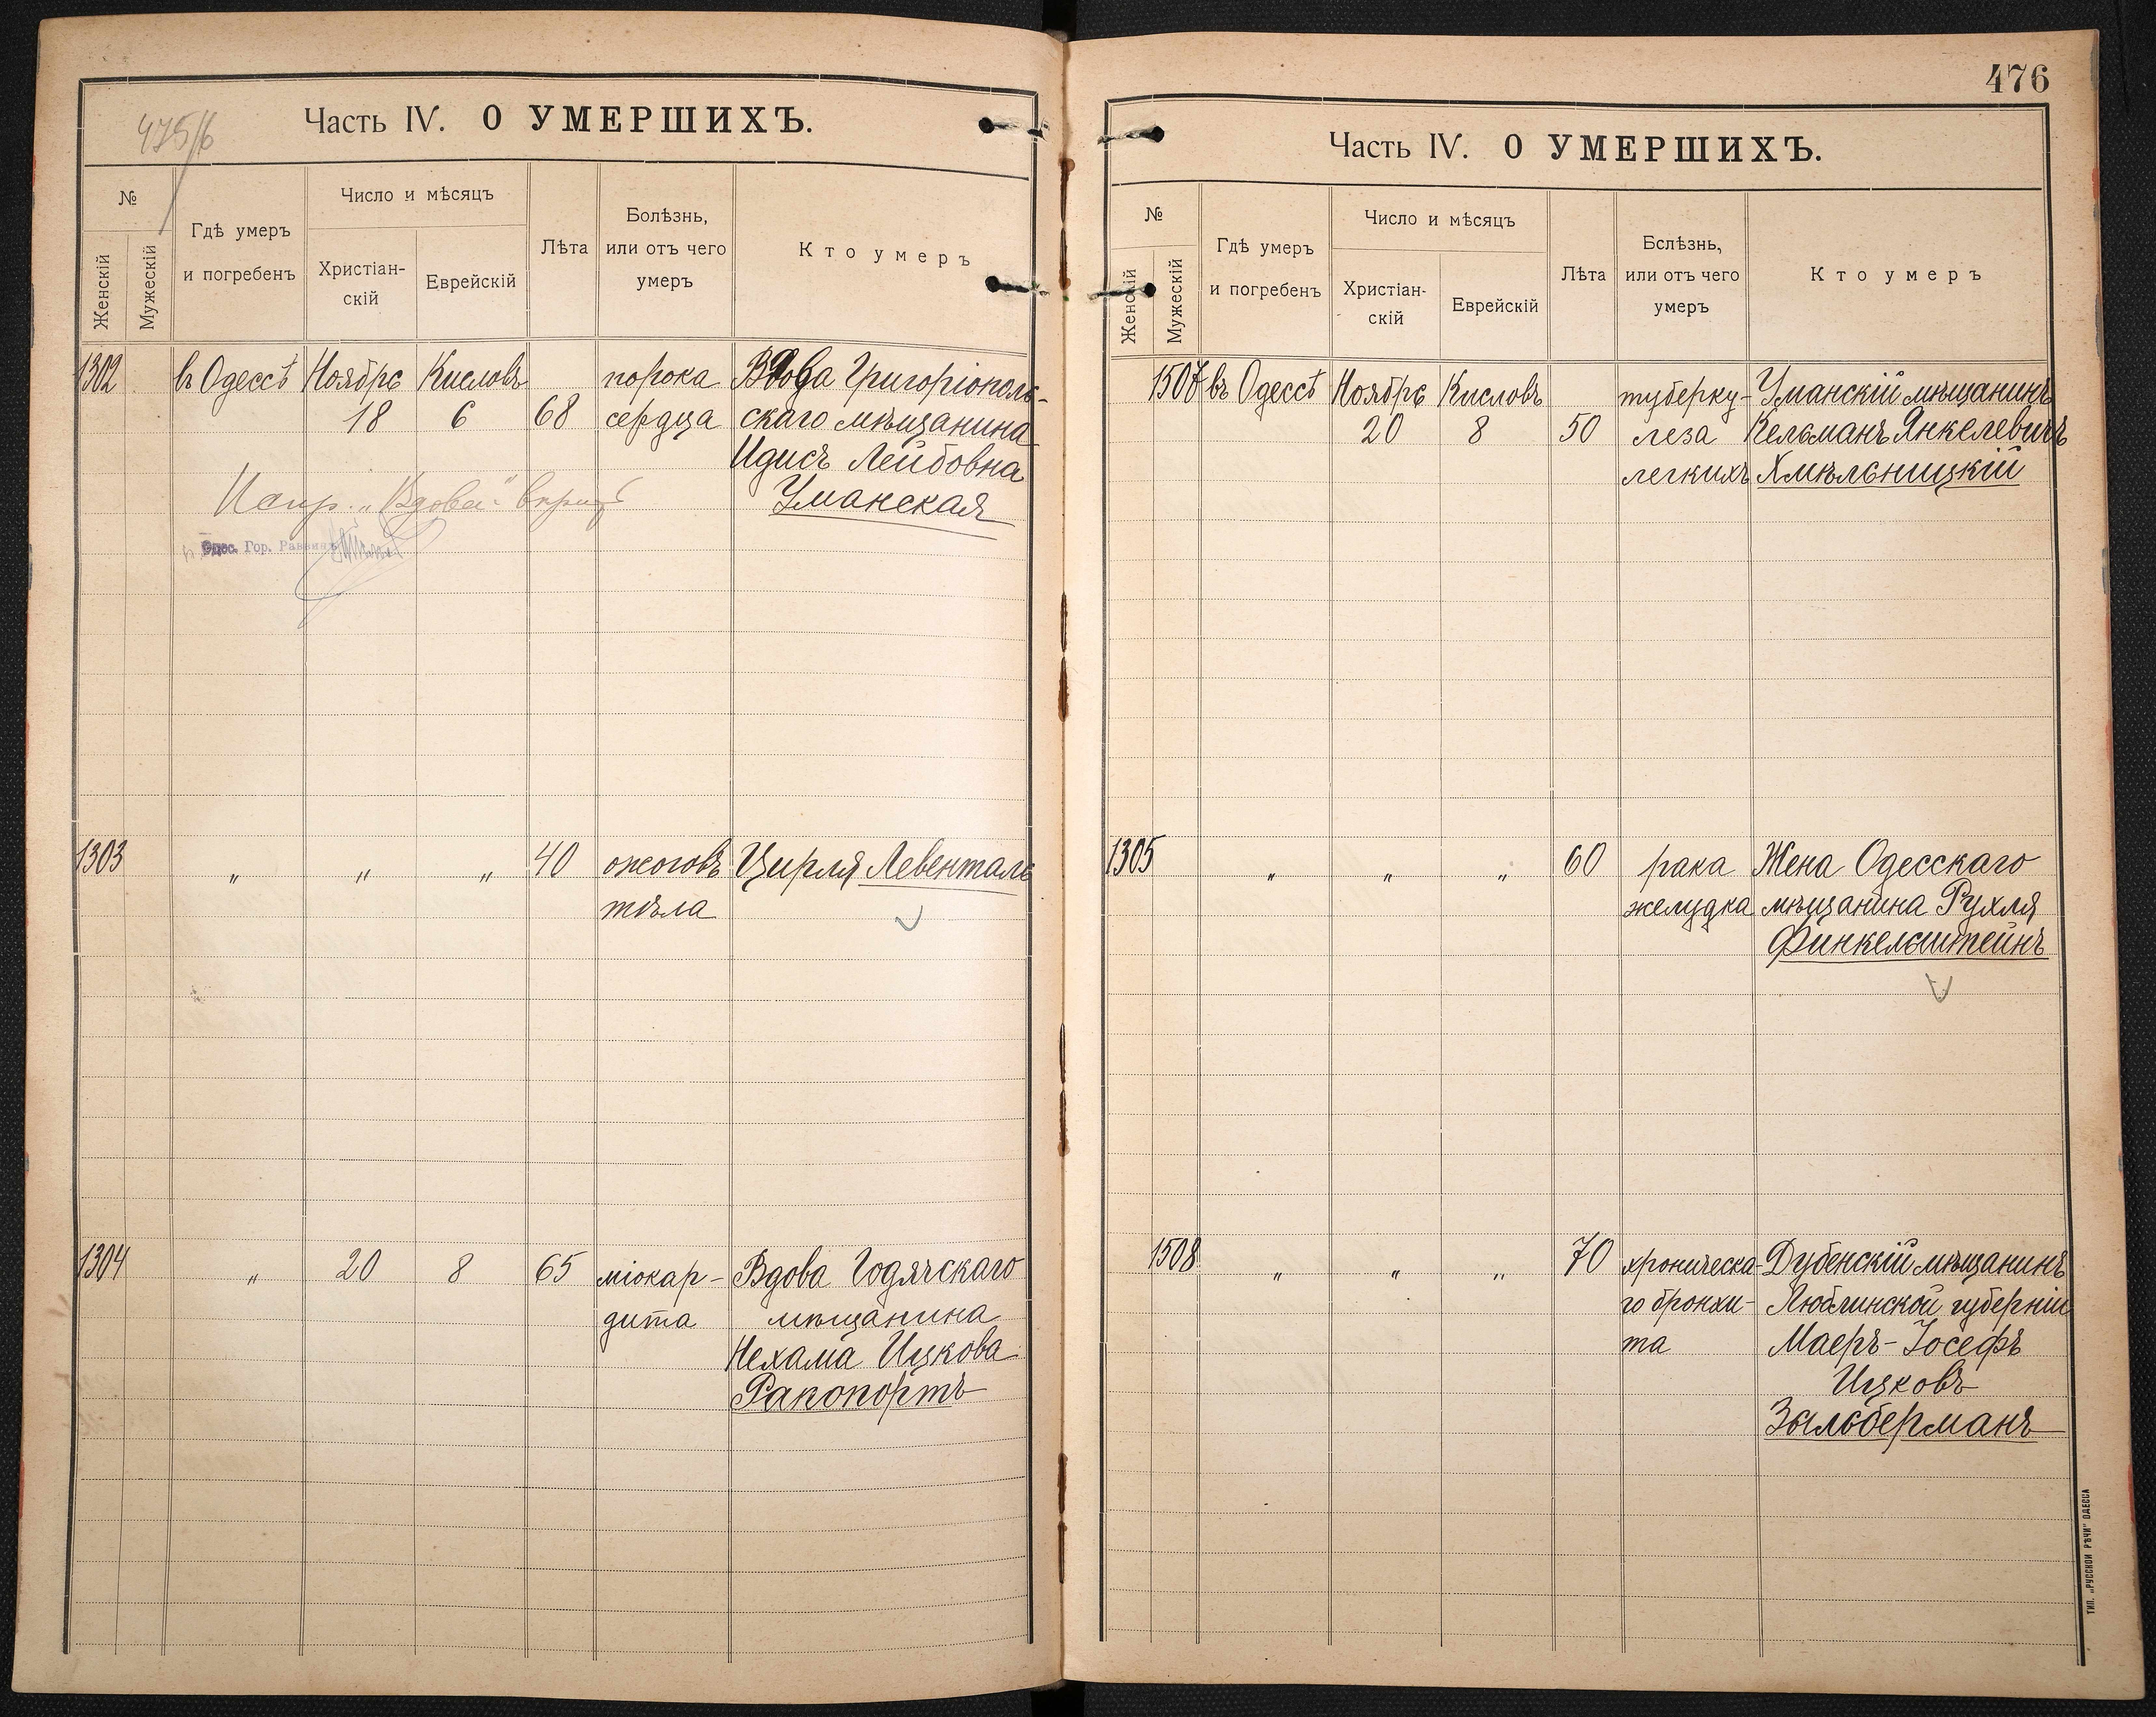 475/6
Часть IV. О УМЕРШИХЪ.
№
Женскій
Мужескій
Гдѣ умеръ
и погребенъ
Число и мѣсяцъ
Христіан-
скій
Еврейскій
Лѣта
Болѣзнь,
или отъ чего
умеръ
Кто умеръ
1302 въ Одессѣ Ноября Кисловъ порока Вдова Григоріополь-
18 6 68 сердца скаго мѣщанина
Идисъ Лейбовна
Уманская
Испр. „Вдова“ вѣрно
Одес. Гор. Раввинъ
1303 „ „ „ 40 ожоговъ Цирля Левенталь
тѣла
1304 „ 20 8 65 міокар- Вдова Годячскаго
дита мѣщанина
Нехама Ицкова
Рапопортъ
476
Часть IV. О УМЕРШИХЪ.
№
Женскій
Мужескій
Гдѣ умеръ
и погребенъ
Число и мѣсяцъ
Христіан-
скій
Еврейскій
Лѣта
Бслѣзнь,
или отъ чего
умеръ
Кто умеръ
1507 въ Одессѣ Ноября Кисловъ туберку- Уманскій мѣщанинъ
20 8 50 леза Кельманъ Янкелевичъ
легкихъ Хмѣльницкій
1305 „ „ „ 60 рака Жена Одесскаго
желудка мѣщанина Рухля
Финкельштейнъ
1508 „ „ „ 70 хроническа- Дубенскій мѣщанинъ
го бронхи- Люблинской губерніи
та Маеръ-Іосефъ
Ицковъ
Зыльберманъ
ТИП. „РУССКОЙ РѢЧИ“ ОДЕССА